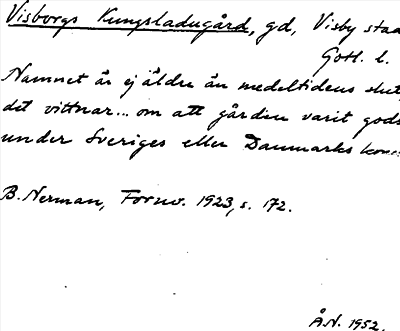 Visborgs Kungsladugård, gd, Visby stad
Gotl. l.
Namnet är ej äldre än medeltidens slut,
det vittnar... om att gården varit gods
under Sveriges eller Danmarks kon...
B. Nerman, Fornv. 1923, s. 172.
Å.N. 1952.